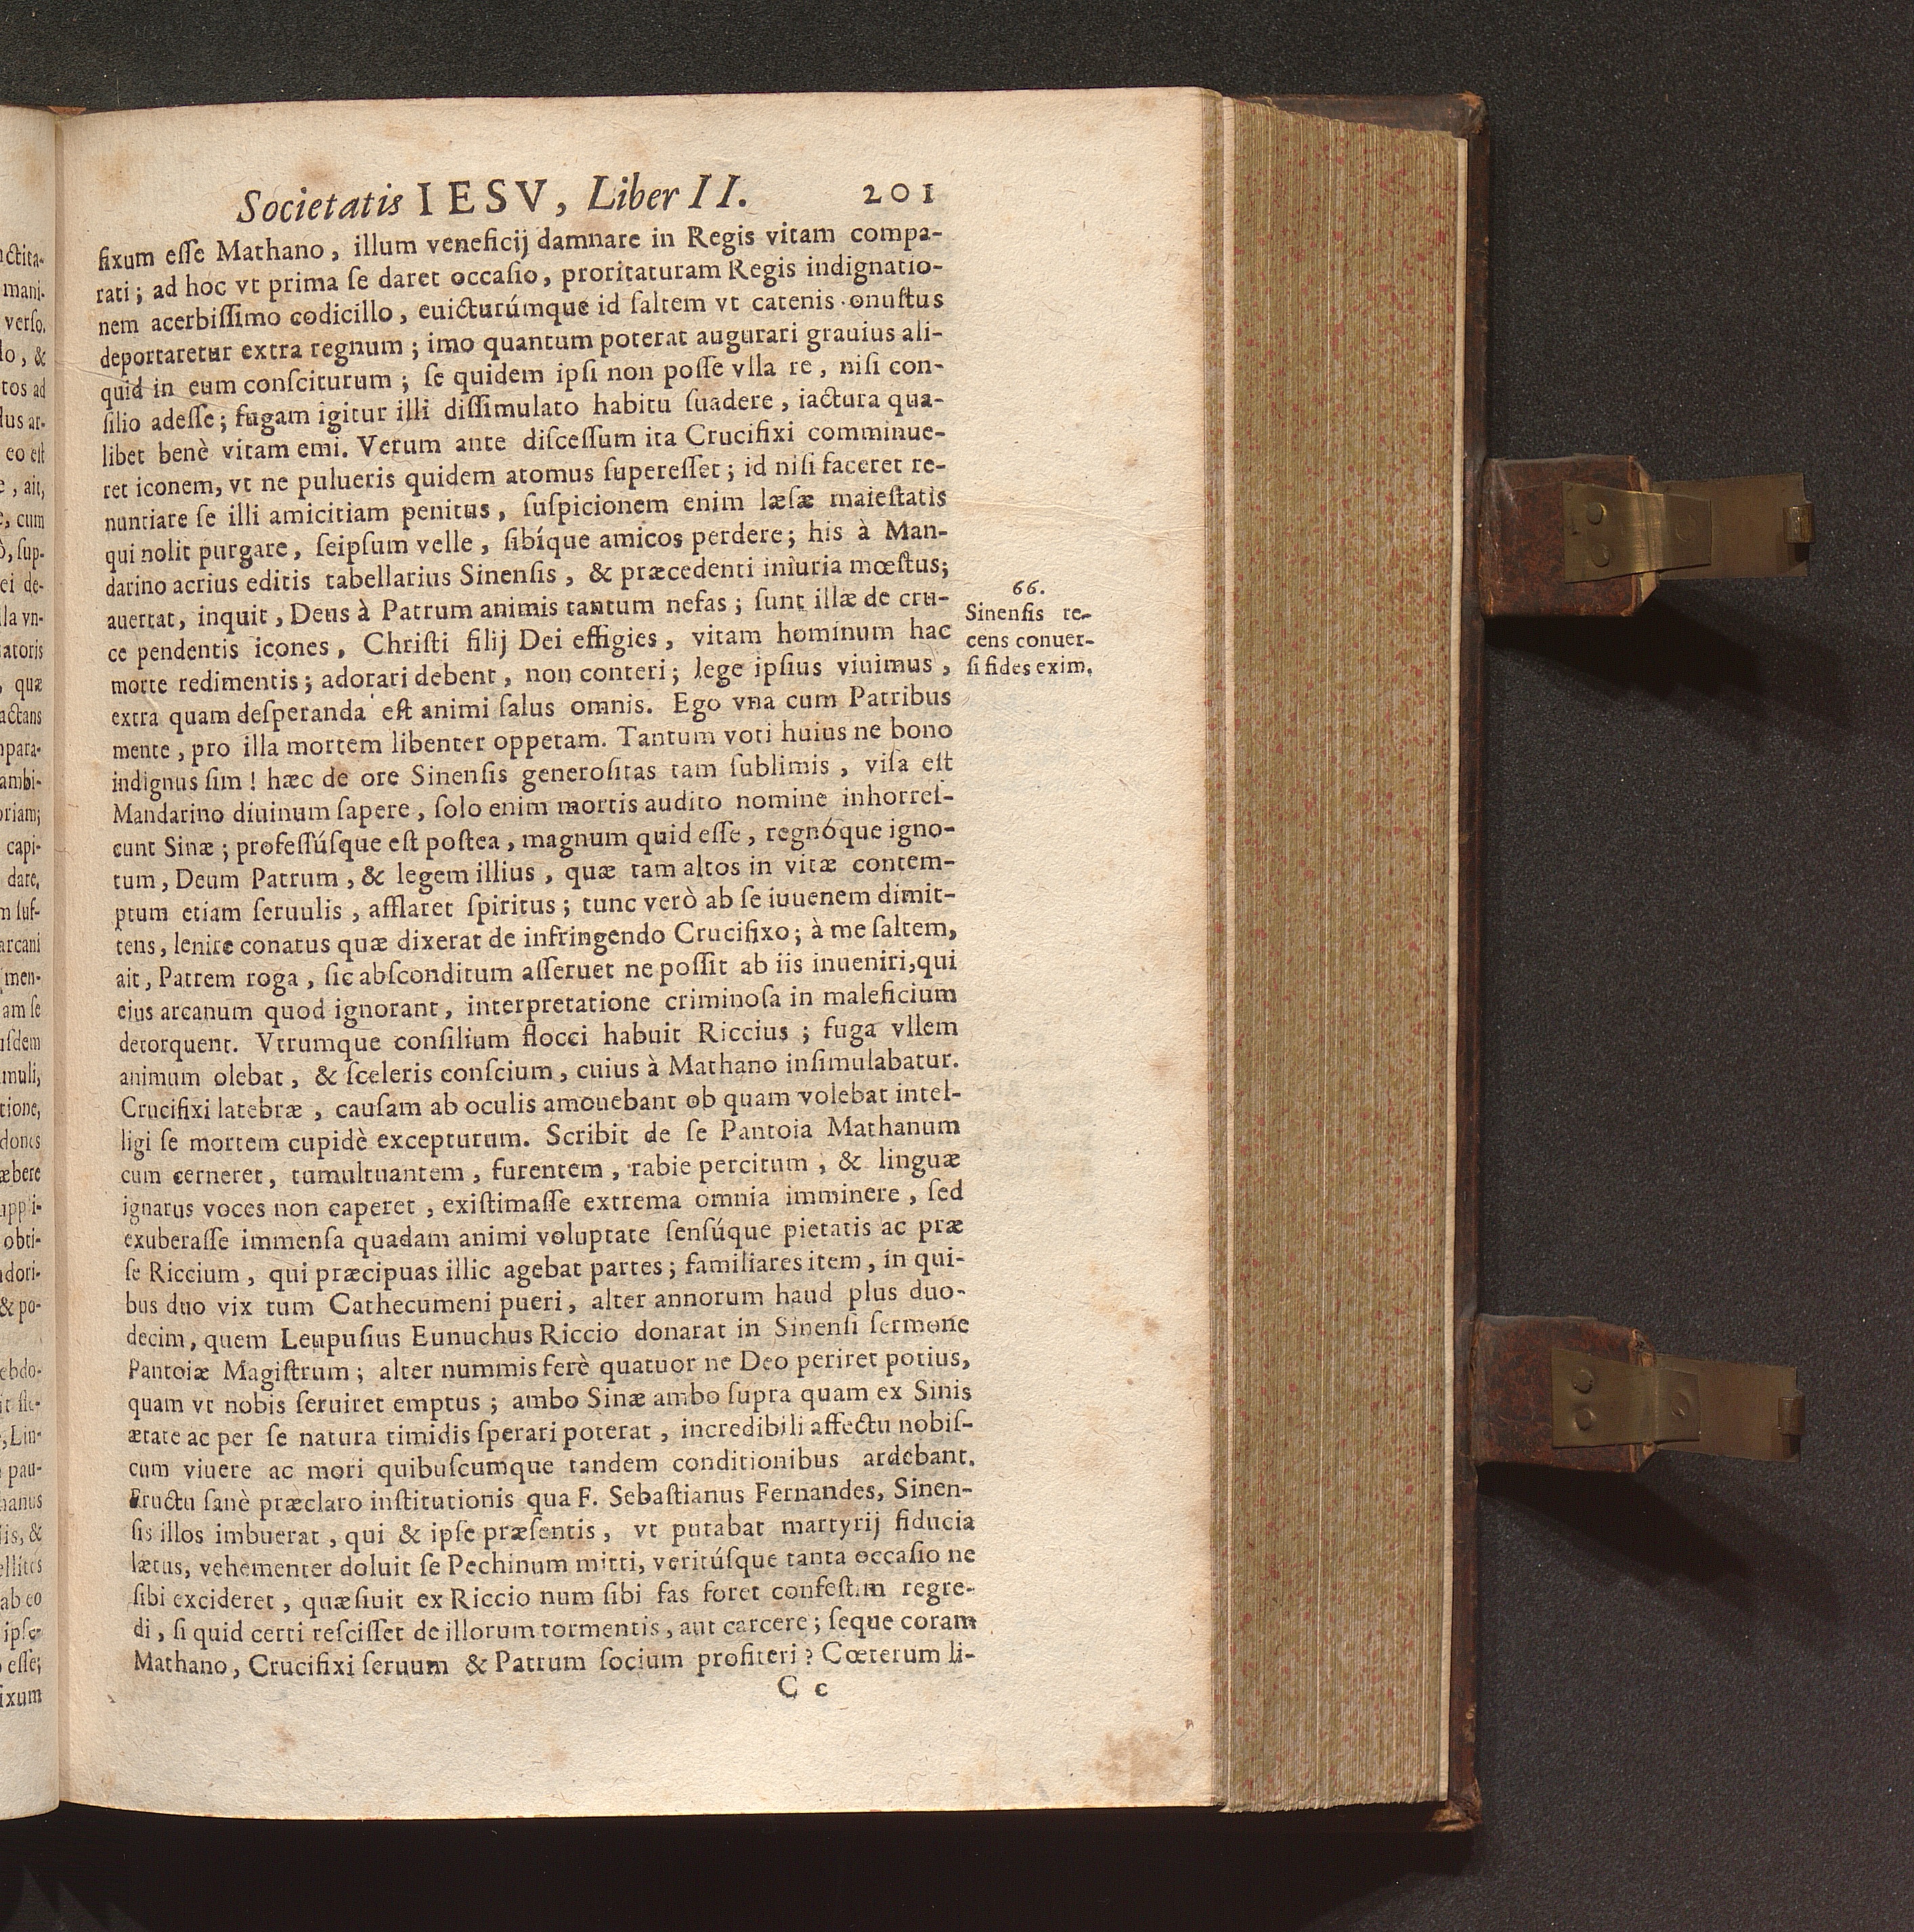 Societatis IESV, Liber II. 201
fixum eſſe Mathano, illum veneficij damnare in Regis vitam compa-
rati; ad hoc vt prima ſe daret occaſio, proritaturam Regis indignatio-
nem acerbiſſimo codicillo, euicturúmque id ſaltem vt catenis onuſtus
deportaretur extra regnum; imo quantum poterat augurari grauius ali-
quid in eum conſciturum; ſe quidem ipſi non poſſe vlla re, niſi con-
ſilio adeſſe; fugam igitur illi diſſimulato habitu ſuadere, iactura qua-
libet benè vitam emi. Verum ante diſceſſum ita Crucifixi comminue-
ret iconem, vt ne pulueris quidem atomus ſupereſſet; id niſi faceret re-
nuntiare ſe illi amicitiam penitus, ſuſpicionem enim læſæ maieſtatis
qui nolit purgare, ſeipſum velle, ſibíque amicos perdere; his à Man-
darino acrius editis tabellarius Sinenſis, & præcedenti iniuria mœſtus;
auertat, inquit, Deus à Patrum animis tantum nefas; ſunt illæ de cru-
ce pendentis icones, Chriſti filij Dei effigies, vitam hominum hac
morte redimentis; adorari debent, non conteri; lege ipſius viuimus,
extra quam deſperanda eſt animi ſalus omnis. Ego vna cum Patribus
mente, pro illa mortem libenter oppetam. Tantum voti huius ne bono
indignus ſim! hæc de ore Sinenſis generoſitas tam ſublimis, viſa eſt
Mandarino diuinum ſapere, ſolo enim mortis audito nomine inhorreſ-
cunt Sinæ; profeſſúſque eſt poſtea, magnum quid eſſe, regnóque igno-
tum, Deum Patrum, & legem illius, quæ tam altos in vitæ contem-
ptum etiam ſeruulis, afflaret ſpiritus; tunc verò ab ſe iuuenem dimit-
tens, lenire conatus quæ dixerat de infringendo Crucifixo; à me ſaltem,
ait, Patrem roga, ſic abſconditum aſſeruet ne poſſit ab iis inueniri, qui
eius arcanum quod ignorant, interpretatione criminoſa in maleficium
detorquent. Vtrumque conſilium flocci habuit Riccius; fuga vllem
animum olebat, & ſceleris conſcium, cuius à Mathano inſimulabatur.
Crucifixi latebræ, cauſam ab oculis amouebant ob quam volebat intel-
ligi ſe mortem cupidè excepturum. Scribit de ſe Pantoia Mathanum
cum cerneret, tumultuantem, furentem, rabie percitum, & linguæ
ignarus voces non caperet, exiſtimaſſe extrema omnia imminere, ſed
exuberaſſe immenſa quadam animi voluptate ſenſúque pietatis ac præ
ſe Riccium, qui præcipuas illic agebat partes; familiares item, in qui-
bus duo vix tum Cathecumeni pueri, alter annorum haud plus duo-
decim, quem Leupuſius Eunuchus Riccio donarat in Sinenſi ſermone
Pantoiæ Magiſtrum; alter nummis ferè quatuor ne Deo periret potius,
quam vt nobis ſeruiret emptus; ambo Sinæ ambo ſupra quam ex Sinis
ætate ac per ſe natura timidis ſperari poterat, incredibili affectu nobiſ-
cum viuere ac mori quibuſcumque tandem conditionibus ardebant.
Fructu ſanè præclaro inſtitutionis qua F. Sebaſtianus Fernandes, Sinen-
ſis illos imbuerat, qui & ipſe præſentis, vt putabat martyrij fiducia
lætus, vehementer doluit ſe Pechinum mitti, veritúſque tanta occaſio ne
ſibi excideret, quæſiuit ex Riccio num ſibi fas foret confeſtim regre-
di, ſi quid certi reſciſſet de illorum tormentis, aut carcere; ſeque coram
Mathano, Crucifixi ſeruum & Patrum ſocium profiteri? Cœterum li-
C c
66.
Sinenſis re-
cens conuer-
ſi fides exim.